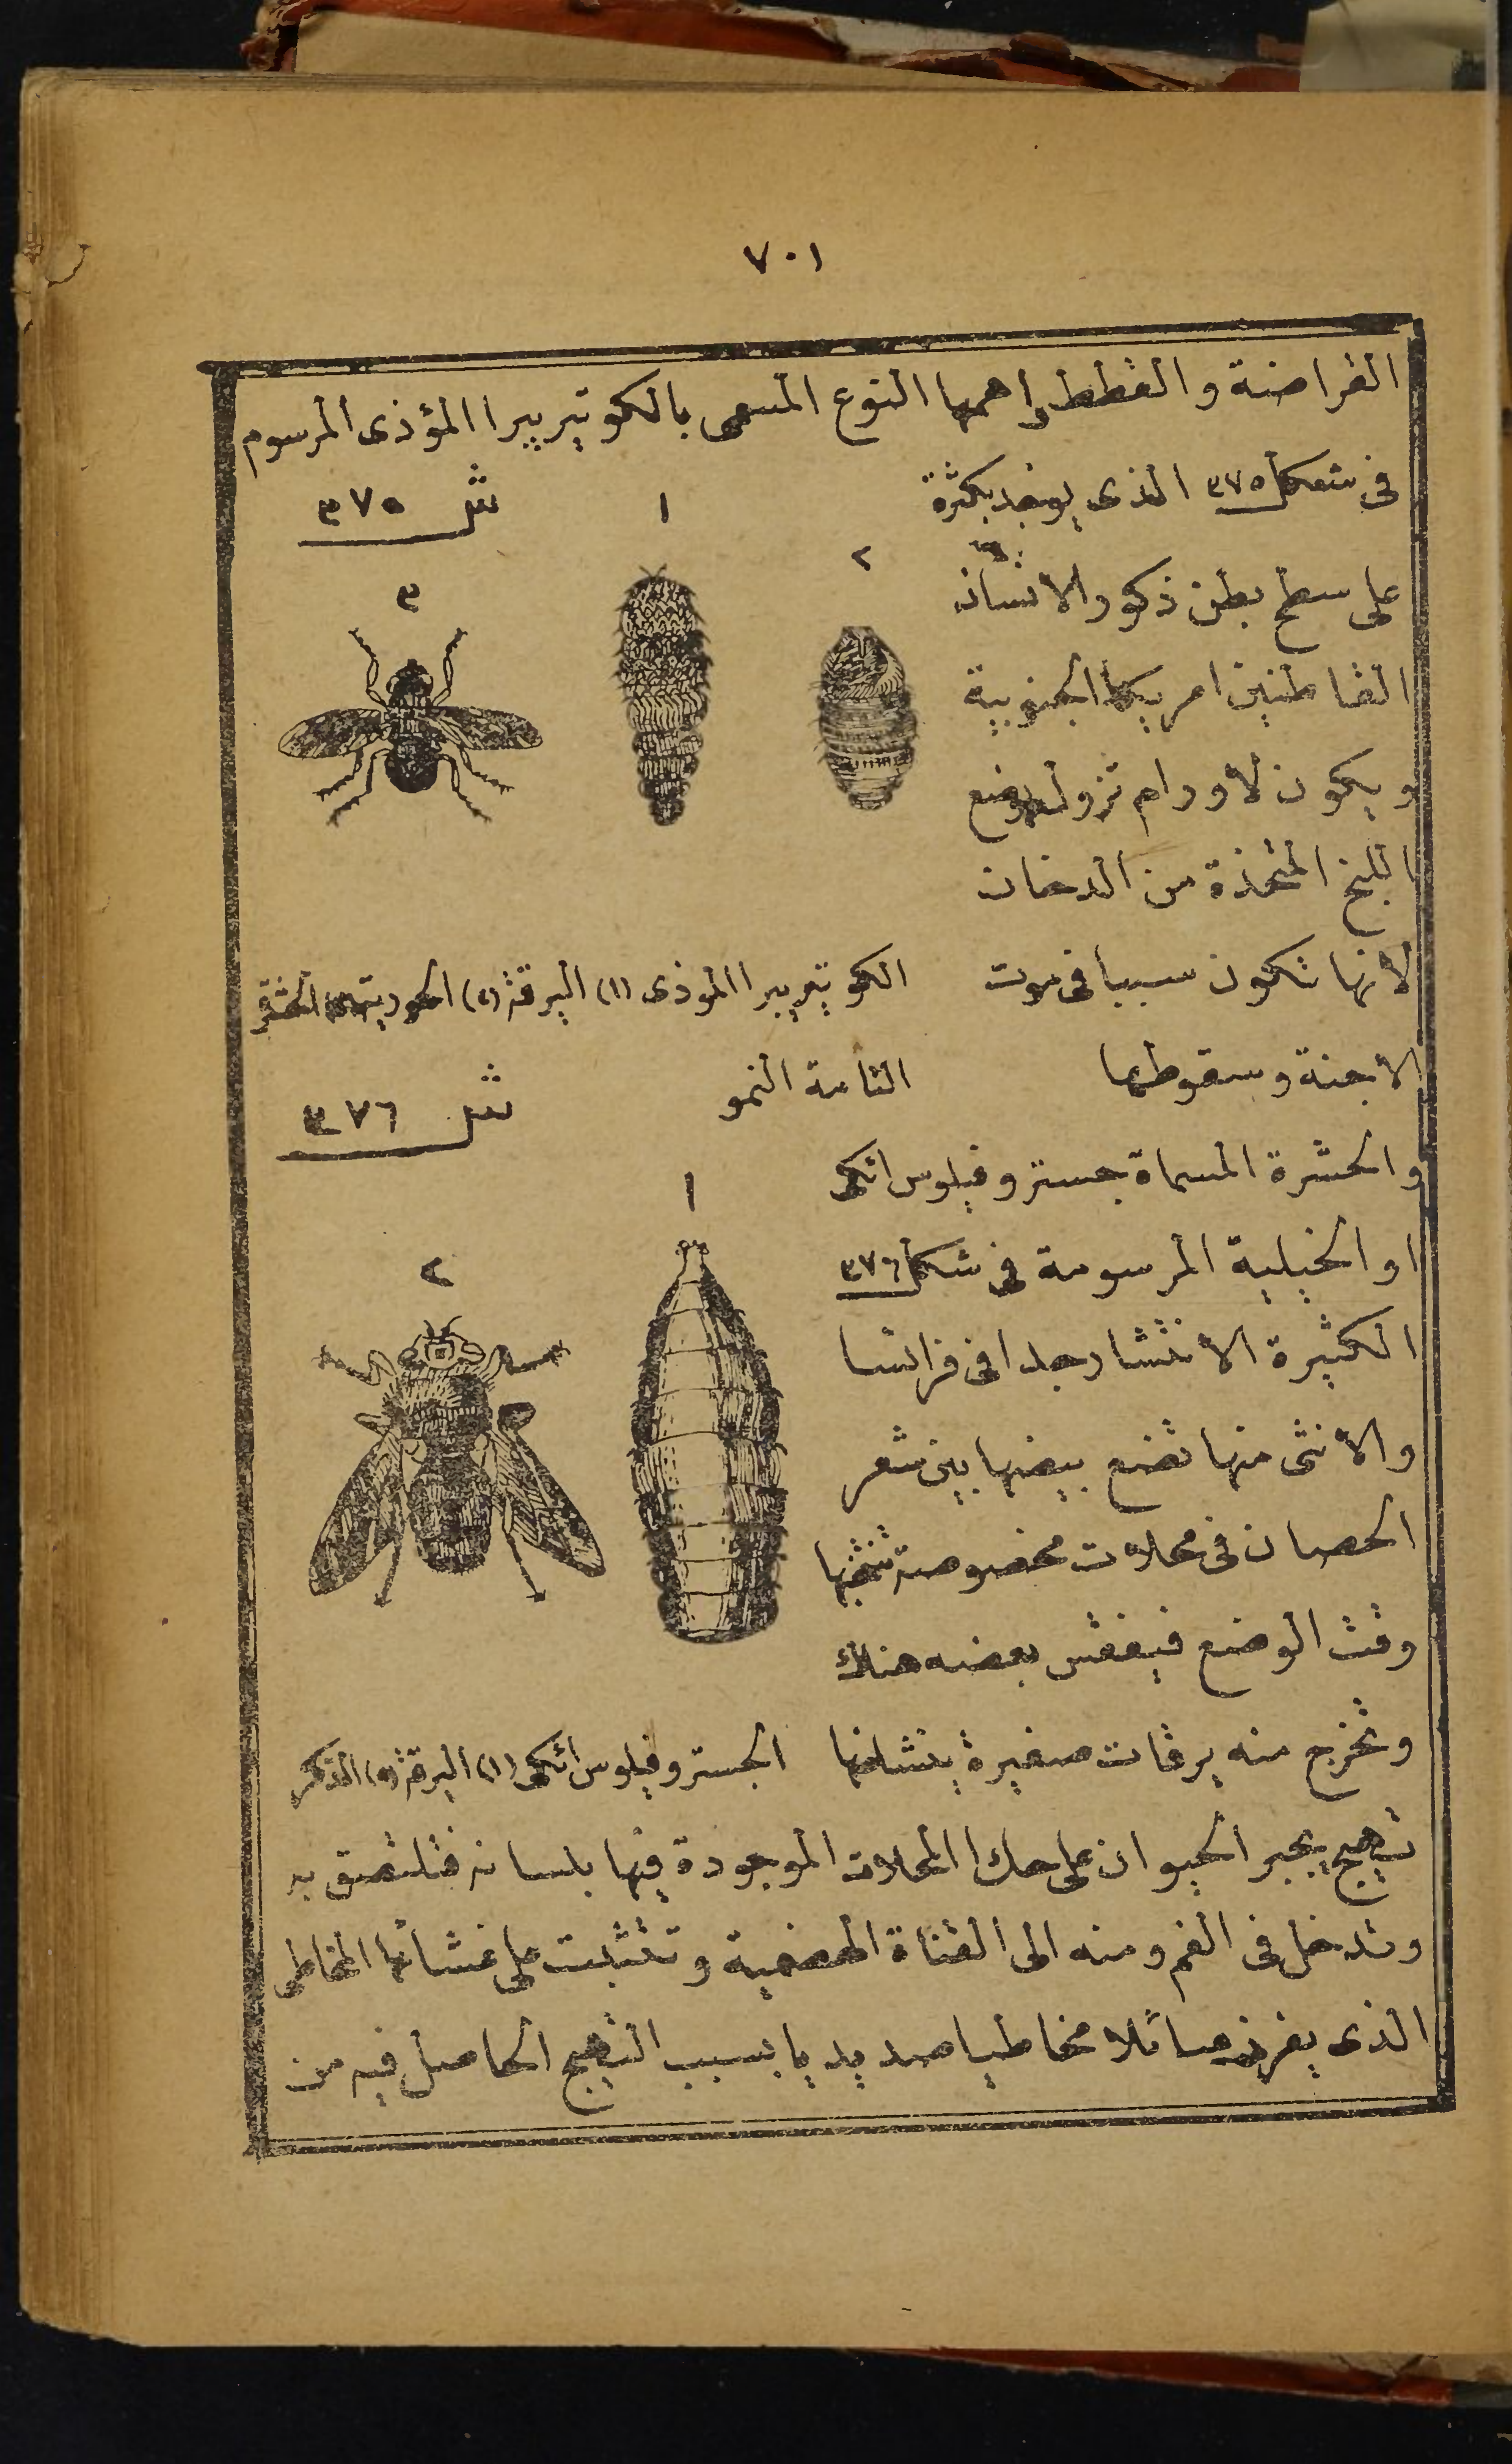 ٧٠١
القراضة والقطط واهمها النوع المسمى بالكوتيربيرا المؤذى المرسوم
فى شكل ٣٧٥ الذى يوجد بكثرة
ش ٣٧٥
١
٢
٣
على سطح بطن ذكور الانسان
القاطنين امريكا الجنوبية
ويكون لاورام تزول بوضع
اللبخ المتخذة من الدخان
لانها تكون سببا فى موت
الاجنة وسقوطها
الكوتيربيرا الموذى (١) اليرقة (٢) الحورية (٣) الحشرة
التامة النمو
ش ٣٧٦
١
٢
والحشرة المسماة جستروفيلوس ائكى
او الخيلية المرسومة فى شكل ٣٧٦
الكثيرة الانتشار جدا فى فرانسا
والانثى منها تضع بيضها بين شعر
الحصان فى محلات مخصوصة تنتخبها
وقت الوضع فيفقس بعضه هناك
وتخرج منه يرقات صغيرة ينشا عنها
الجستروفيلوس ائكى (١) اليرقة (٢) الذكر
تهيج يجبر الحيوان على حك المحلات الموجودة فيها بلسانه فتلتصق به
وتدخل فى الفم ومنه الى القناة الهضمية وتتثبت على غشائها المخاطى
الذى يفرز سائلا مخاطيا صديديا بسبب التهيج الحاصل فيه من